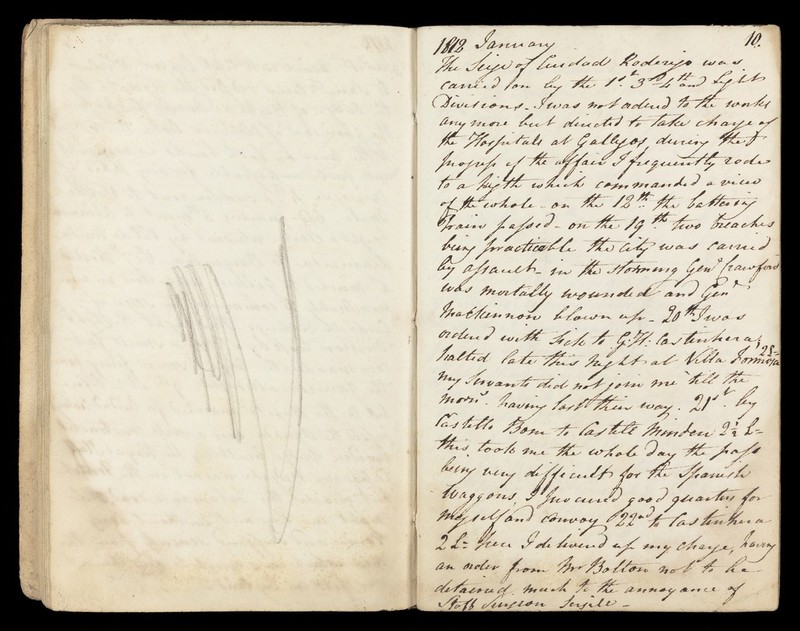 1812 January 10.
The Seige of Ciudad Roderigo was
carried on by the 1st. 3rd 4th and Light
Divisions. I was not ordered to the works
any more but directed to take charge of
the Hospitals at Gallegos, during the
progress of the affair I frequently rode
to a higth which commanded a view
of the whole - on the 12th. the battering
train passed - on the 19th two breaches
being practicable the City was carried
by assault - in the storming Genl Crawford
was mortally wounded and Genl
MacKinnon blown up - 20th I was
ordered with sick to G. H. Castinhera,
halted late this night at Villa Formosa 2 L-
my servants did not join me 'till the
morng. having lost their way. 21st. by
Castello Bom to Castell Menden 2½ L-
this took me the whole day the pass
being very difficult for the Spanish
Waggons, I procured good quarters for
myself and convoy 22nd to Castinhera
2 L- here I delivered up my charge, having
an order from Mr Bolton not to be
detained. much to the annoyance of
Staff Surgeon